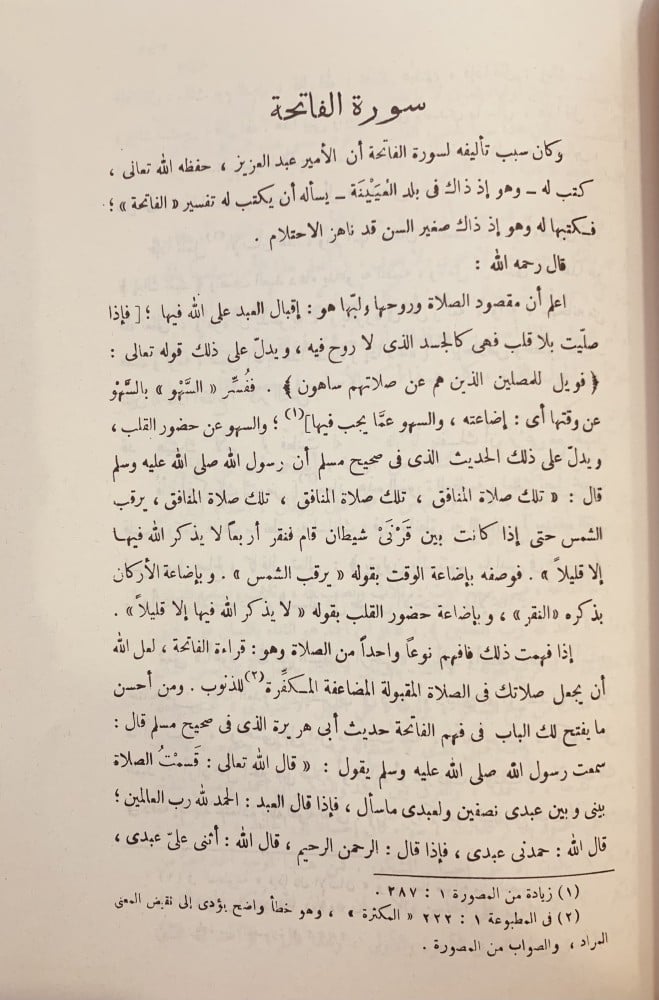 سورة الفاتحة
وكان سبب تأليفه لسورة الفاتحة أن الأمير عبد العزيز ، حفظه الله تعالى ،
كتب له ــ وهو إذ ذاك فى بلد العُيَيْنَة ــ يسأله أن يكتب له تفسير « الفاتحة » ؛
فكتبها له وهو إذ ذاك صغير السن قد ناهز الاحتلام .
قال رحمه الله :
اعلم أن مقصود الصلاة وروحها ولبّها هو : إقبال العبد على الله فيها ؛ [ فإذا
صلّيت بلا قلب فهى كالجسد الذى لا روح فيه ، ويدلّ على ذلك قوله تعالى :
﴿ فويل للمصلين الذين هم عن صلاتهم ساهون ﴾ . فَفُسِّر « السَّهْو » بالسَّهْو
عن وقتها أى : إضاعته ، والسهو عمَّا يجب فيها ](١) ؛ والسهو عن حضور القلب ،
ويدلّ على ذلك الحديث الذى فى صحيح مسلم أن رسول الله صلى الله عليه وسلم
قال : « تلك صلاة المنافق ، تلك صلاة المنافق ، تلك صلاة المنافق ، يرقب
الشمس حتى إذا كانت بين قَرْنَىْ شيطان قام فنقر أربعاً لا يذكر الله فيها
إلا قليلاً » . فوصفه بإضاعة الوقت بقوله « يرقب الشمس » . وبإضاعة الأركان
بذكره « النقر » ، وبإضاعة حضور القلب بقوله « لا يذكر الله فيها إلا قليلاً » .
إذا فهمت ذلك فافهم نوعاً واحداً من الصلاة وهو : قراءة الفاتحة ، لعل الله
أن يجعل صلاتك فى الصلاة المقبولة المضاعفة المكفِّرة(٢) للذنوب . ومن أحسن
ما يفتح لك الباب فى فهم الفاتحة حديث أبى هريرة الذى فى صحيح مسلم قال :
سمعت رسول الله صلى الله عليه وسلم يقول : « قال الله تعالى : قَسمْتُ الصلاة
بينى وبين عبدى نصفين ولعبدى ماسأل ، فإذا قال العبد : الحمد لله رب العالمين ؛
قال الله : حمدنى عبدى ، فإذا قال : الرحمن الرحيم ، قال الله : أثنى علىّ عبدى ،
(١) زيادة من المصورة ١ : ٣٨٧ .
(٢) فى المطبوعة ١ : ٢٢٢ « المكثرة » ، وهو خطأ واضح يؤدى إلى نقيض المعنى
المراد ، والصواب من المصورة .